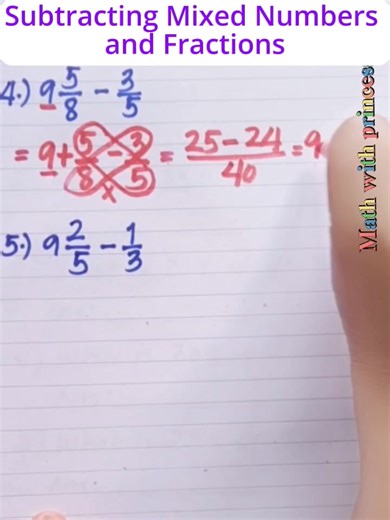 Subtracting Mixed Numbers
and Fractions
4.) 9 5/8 - 3/5
= 9 + 5/8 - 3/5 = 25 - 24/40 = 9
x
5.) 9 2/5 - 1/3
Math with princes